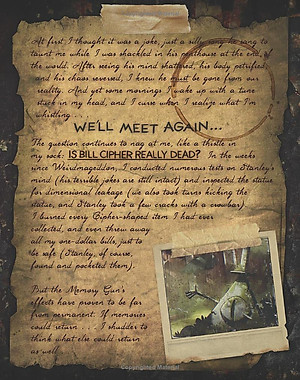 At first I thought it was a joke, just a silly song he sang to
taunt me while I was shackled in his penthouse at the end of
the world. After seeing his mind shattered, his body petrified,
and his chaos reversed, I knew he must be gone from our
reality. And yet some mornings I wake up with a tune
stuck in my head, and I curse when I realize what I'm
whistling...
WE'LL MEET AGAIN...
The question continues to nag at me, like a thistle in
my sock: IS BILL CIPHER REALLY DEAD? In the weeks
since Weirdmageddon, I conducted numerous tests on Stanley's
mind (his terrible jokes are still intact) and inspected the statue
for dimensional leakage (we also took turns kicking the
statue, and Stanley took a few cracks with a crowbar).
I burned every Cipher-shaped item I had ever
collected, and even threw away
all my one-dollar bills, just to
be safe (Stanley, of course,
found and pocketed them).
But the Memory Gun's
effects have proven to be far
from permanent. If memories
could return . . . I shudder to
think what else could return
as well.